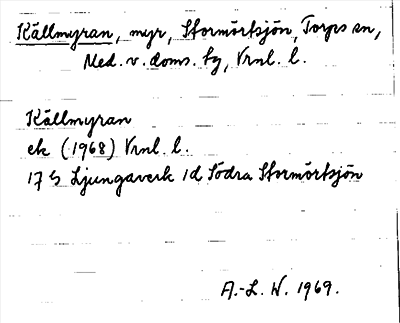 Källmyran, myr, Stormörtsjön, Torps sn,
Med. v. doms. tg, Vrnl. l.
Källmyran
ek (1968) Vrnl. l.
17 G Ljungaverk 1d Södra Stormörtsjön
A.-L. W. 1969.